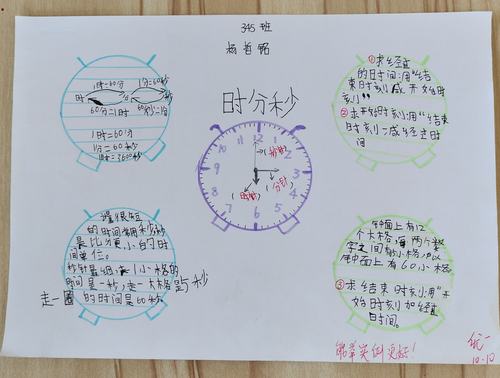 345 班
时分秒
1时=60分
1分=60秒
时
分
秒
60分=1时
60秒=1分
1时=60分
1分=60秒
1时=3600秒
① 求经过
的时间:用"结
束时刻减开始时
刻"
② 求开始时刻:用"结束
时刻-减经过时
间
12
1
2
3
4
5
6
7
8
9
10
11
(秒针)
(分针)
(时针)
量很短
的时间用秒,秒
是比分更小的时
间单位。
秒针走1小格的
时间是一秒,走一大格是5秒
走一圈的时间是60秒
钟面上有12
个大格,每两个数
字之间有5小格,所以
钟面上有60小格。
③ 求结束时刻:用"开
始时刻加经过
时间。
优一
10.10